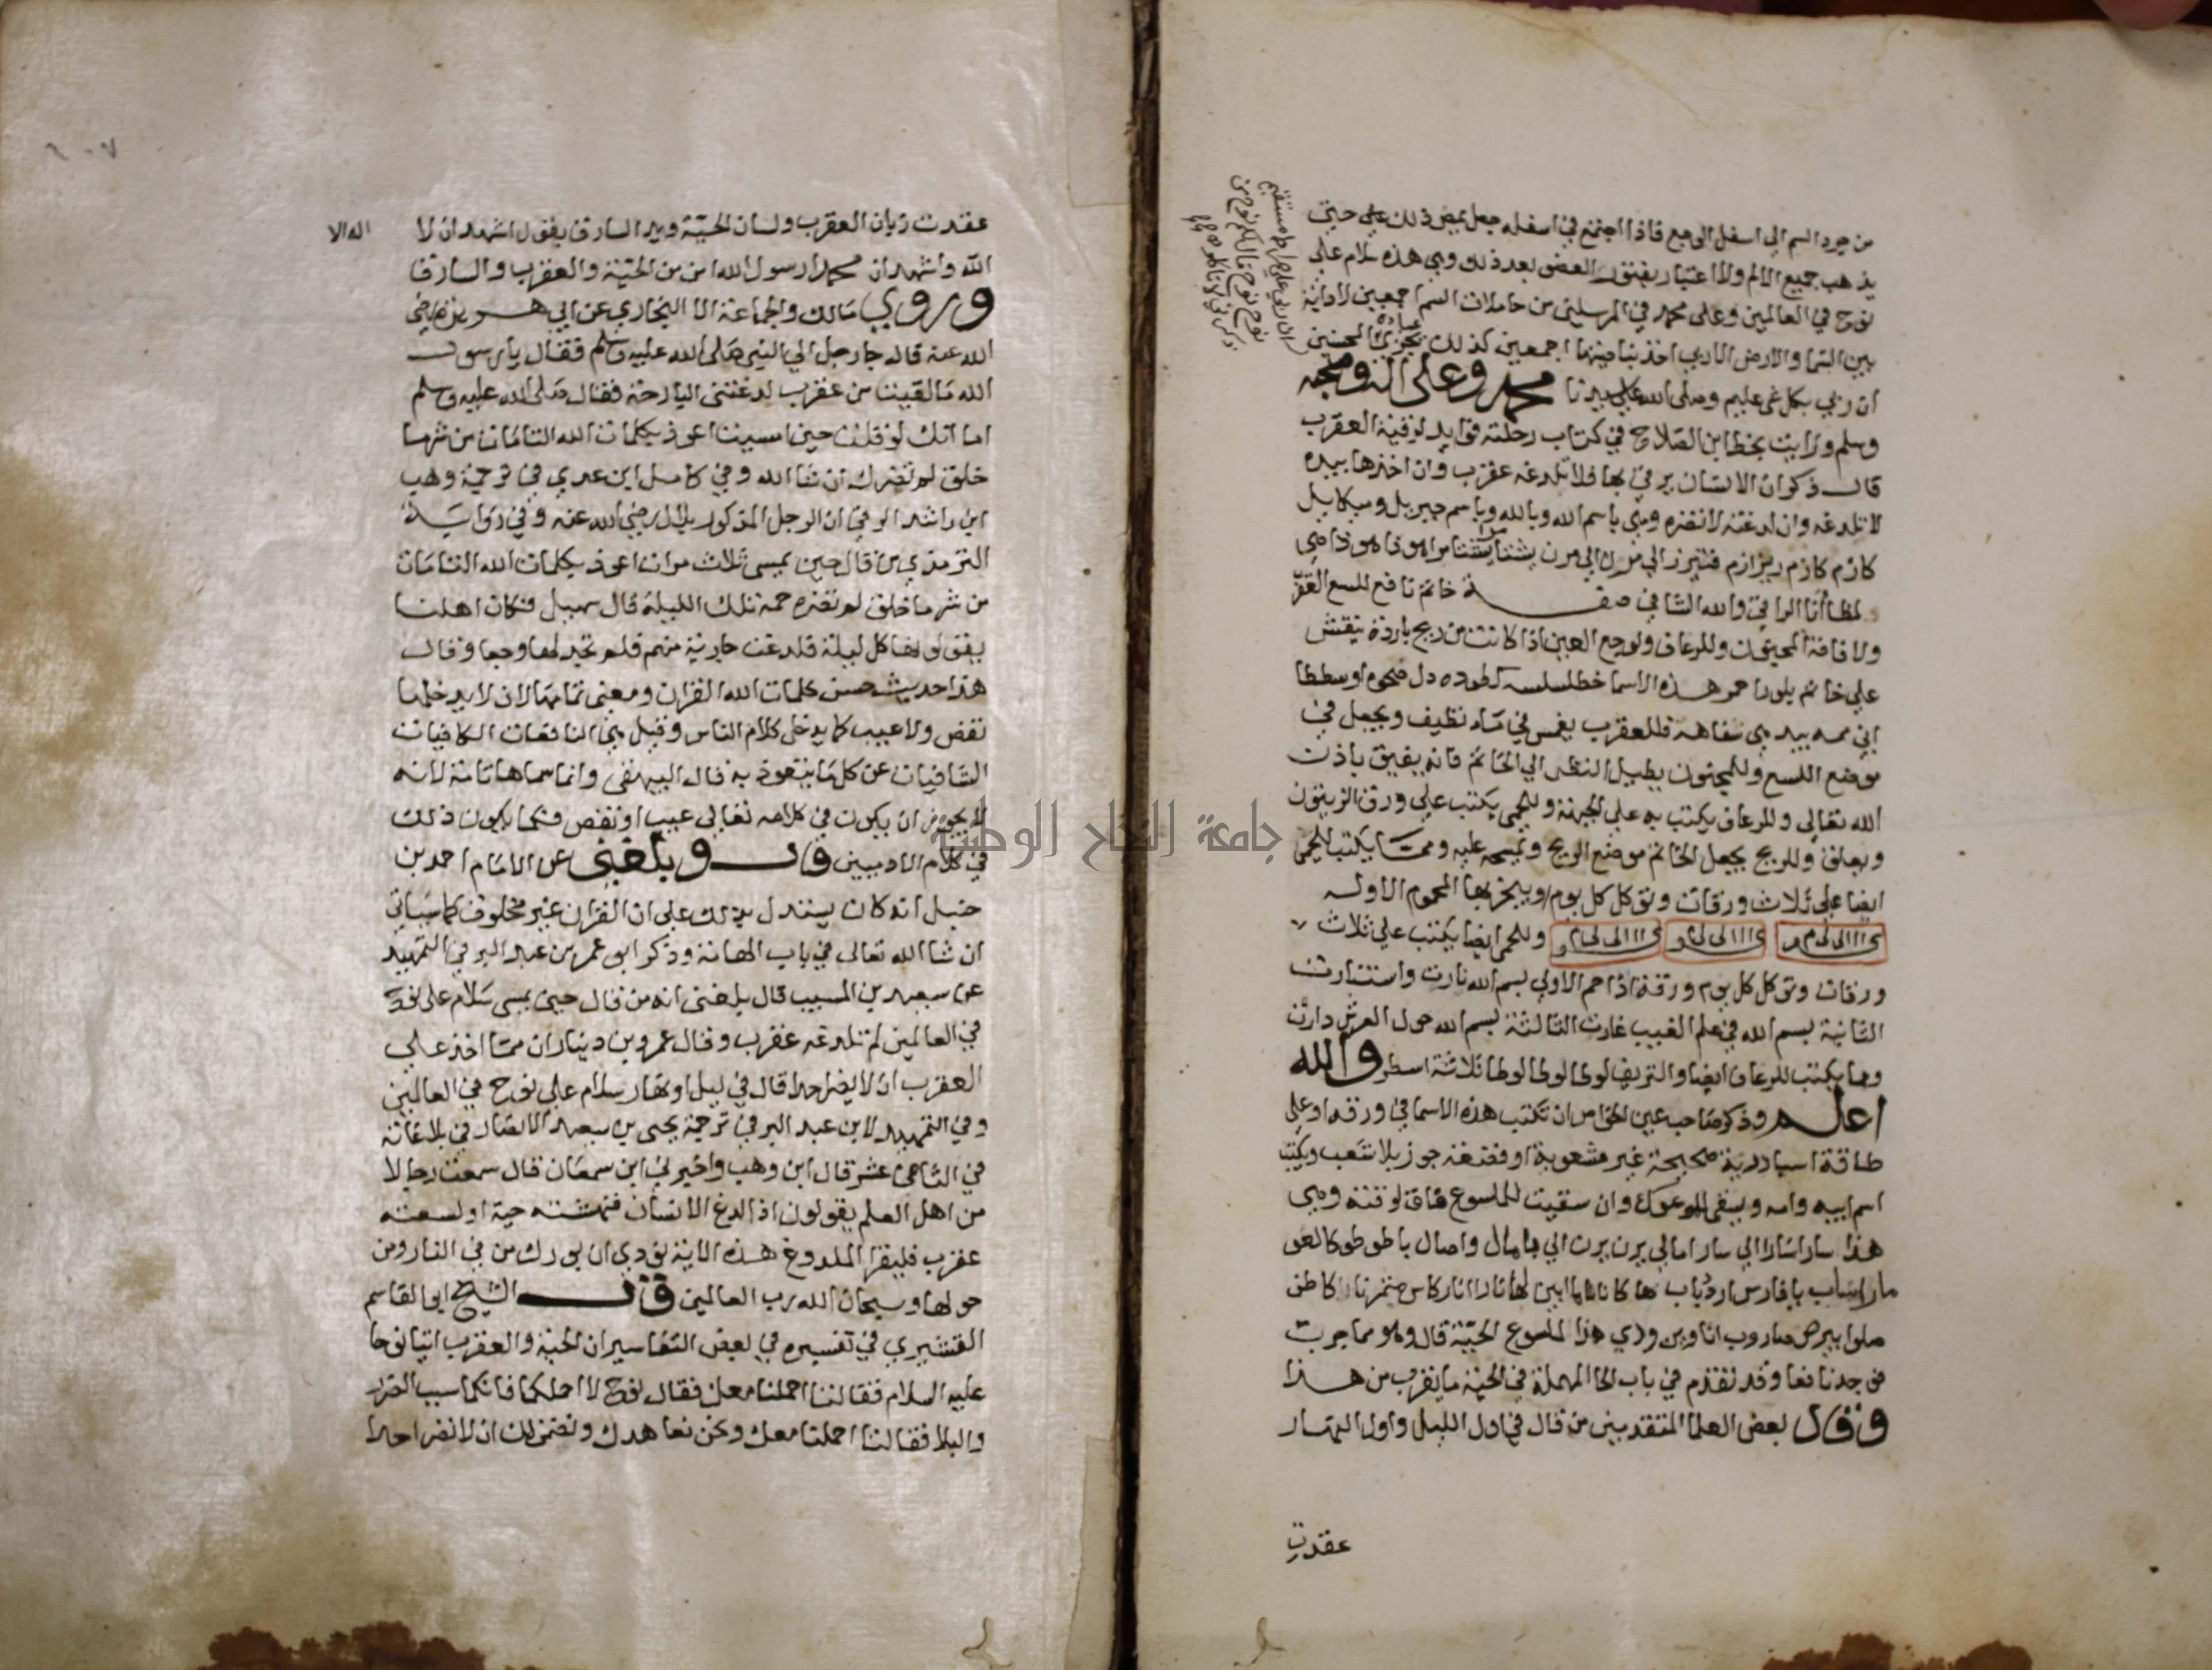 من جرد السم الي اسفل الوجع فاذا اجتمع في اسفله جعل يمص ذلك علي حتي
يذهب جميع الالم ولا اعتبار بفتور العضو بعد ذلك وهي هذه سلام علي
نوح في العالمين وعلي محمد في المرسلين من حاملات السم اجمعين لا دابة
بين السما والارض الا ربي اخذ بناصيتها اجمعين كذلك يجزي عباده المحسنين
ان ربي بكل شي عليم وصلي الله علي سيدنا محمد وعلي اله وصحبه
وسلم ورايت بخط ابن الصلاح في كتاب رحلته فوايد لرقية العقرب
قال ذكر ان الانسان يرقي بها فلا تلدغه عقرب وان اخذها بيده
لا تلدغه وان لدغته لا تضره وهي باسم الله وبالله وباسم جبريل وميكايل
كازم كازم
لمظا انا الراقي والله الشافي صفة خاتم نافع للسع العقرب
ولافاقة المجنون وللرعاف ولوجع العين اذا كانت من ريح باردة ينقش
علي خاتم بلور احمر هذه الاسما
فللعقرب يغمس في ماء نظيف ويجعل في
موضع اللسع وللمجنون يطيل النظر الي الخاتم فانه يفيق باذن
الله تعالي وللرعاف يكتب به علي الجبهة وللحمي يكتب علي ورق الزيتون
وبعلق وللريح يجعل الخاتم موضع الريح ويمسح عليه ومما يكتب للحمي
ايضا علي ثلاث ورقات وتوكل كل يوم ويبخر بها المحموم الاولي
وللحمي ايضا يكتب علي ثلاث
ورقات وتوكل كل يوم ورقة اذا حم الاولي بسم الله نارت واستنارت
الثانية بسم الله في علم الغيب غارت الثالثة بسم الله حول العرش دارت
ومما يكتب للرعاف ايضا والنزيف لوطا لوطا لوطا ثلاثة اسطر والله
اعلم وذكر صاحب عين الخواص ان تكتب هذه الاسما في ورقه او علي
طاقة اسبادرية صحيحة غير مشعوبة او قصعة جوز بلا شعب ويكتب
اسم ابيه وامه ويسقي الموعوك وان سقيت للملسوع فاق لوقته وهي
هذا سارا سارا الي سارا مالي يرن يرن الي بامال واصال باطوطو كالعو
مارا سباب يا فارس اردباب
هذا لملسوع الحية قال وهو مما جرب
فوجد نافعا وقد تقدم في باب الحا المهملة في الحية ما يقرب من هذا
وقال بعض العلما المتقدمين من قال في اول الليل واول النهار
عقدت
ان ربي علي صراط مستقيم
نوح نوح قال لكم نوح من
ذكرني لا تاكلوه
عقدت زبان العقرب ولسان الحية ويد السارق بقول اشهد ان لا
اله الا
الله واشهد ان محمدا رسول الله امن من الحية والعقرب والسارق
وروي مالك والجماعة الا البخاري عن ابي هريرة رضي
الله عنه قال جا رجل الي النبي صلي الله عليه وسلم فقال يا رسول
الله ما لقيت من عقرب لدغتني البارحة فقال صلي الله عليه وسلم
اما انك لو قلت حين امسيت اعوذ بكلمات الله التامات من شر ما
خلق لم تضرك ان شا الله وفي كامل ابن عدي في ترجمة وهب
ابن راشد الرقي ان الرجل المذكور بلال رضي الله عنه وفي رواية
الترمذي من قال حين يمسي ثلاث مرات اعوذ بكلمات الله التامات
من شر ما خلق لم تضره حمة تلك الليلة قال سهيل فكان اهلنا
يقولونها كل ليلة فلدغت جارية منهم فلم تجد لها وجعا وقال
هذا حديث حسن كلمات الله القران ومعني تمامها الان لا يدخلها
نقص ولا عيب كما يدخل كلام الناس وقيل هي النافعات الكافيات
الشافيات عن كل ما يتعوذ به قال البيهقي وانما سماها تامة لانه
لا يجوز ان يكون في كلامه تعالي عيب او نقص وكما يكون ذلك
في كلام الادميين قال وبلغني عن الامام احمد بن
حنبل انه كان يستدل بذلك علي ان القران غير مخلوق كما سياتي
ان شا الله تعالي في باب الهامة وذكر ابو عمر بن عبد البر في التمهيد
عن سعيد بن المسيب قال بلغني انه من قال حين يمسي سلام علي نوح
في العالمين لم تلدغه عقرب وقال عمرو بن دينار ان مما اخذ علي
العقرب ان لا يضر احدا قال في ليل او نهار سلام علي نوح في العالمين
وفي التمهيد لابن عبد البر في ترجمة يحيي بن سعيد الانصار في بلاغاته
في التاسع عشر قال ابن وهب واخبرني ابن سمعان قال سمعت رجالا
من اهل العلم يقولون اذا لدغ الانسان فنهشته حية او لسعته
عقرب فليقرا الملدوغ هذه الاية نودي ان بورك من في النار ومن
حولها وسبحان الله رب العالمين قال الشيخ ابو القاسم
القشيري في تفسيره في بعض التفاسير ان الحية والعقرب اتيا نوحا
عليه السلام فقالتا احملنا معك فقال نوح لا احملكما فانكما سبب الضرر
والبلا فقالتا احملنا معك ونحن نعاهدك ونضمن لك ان لا نضر احدا
جامعة النجاح الوطنية